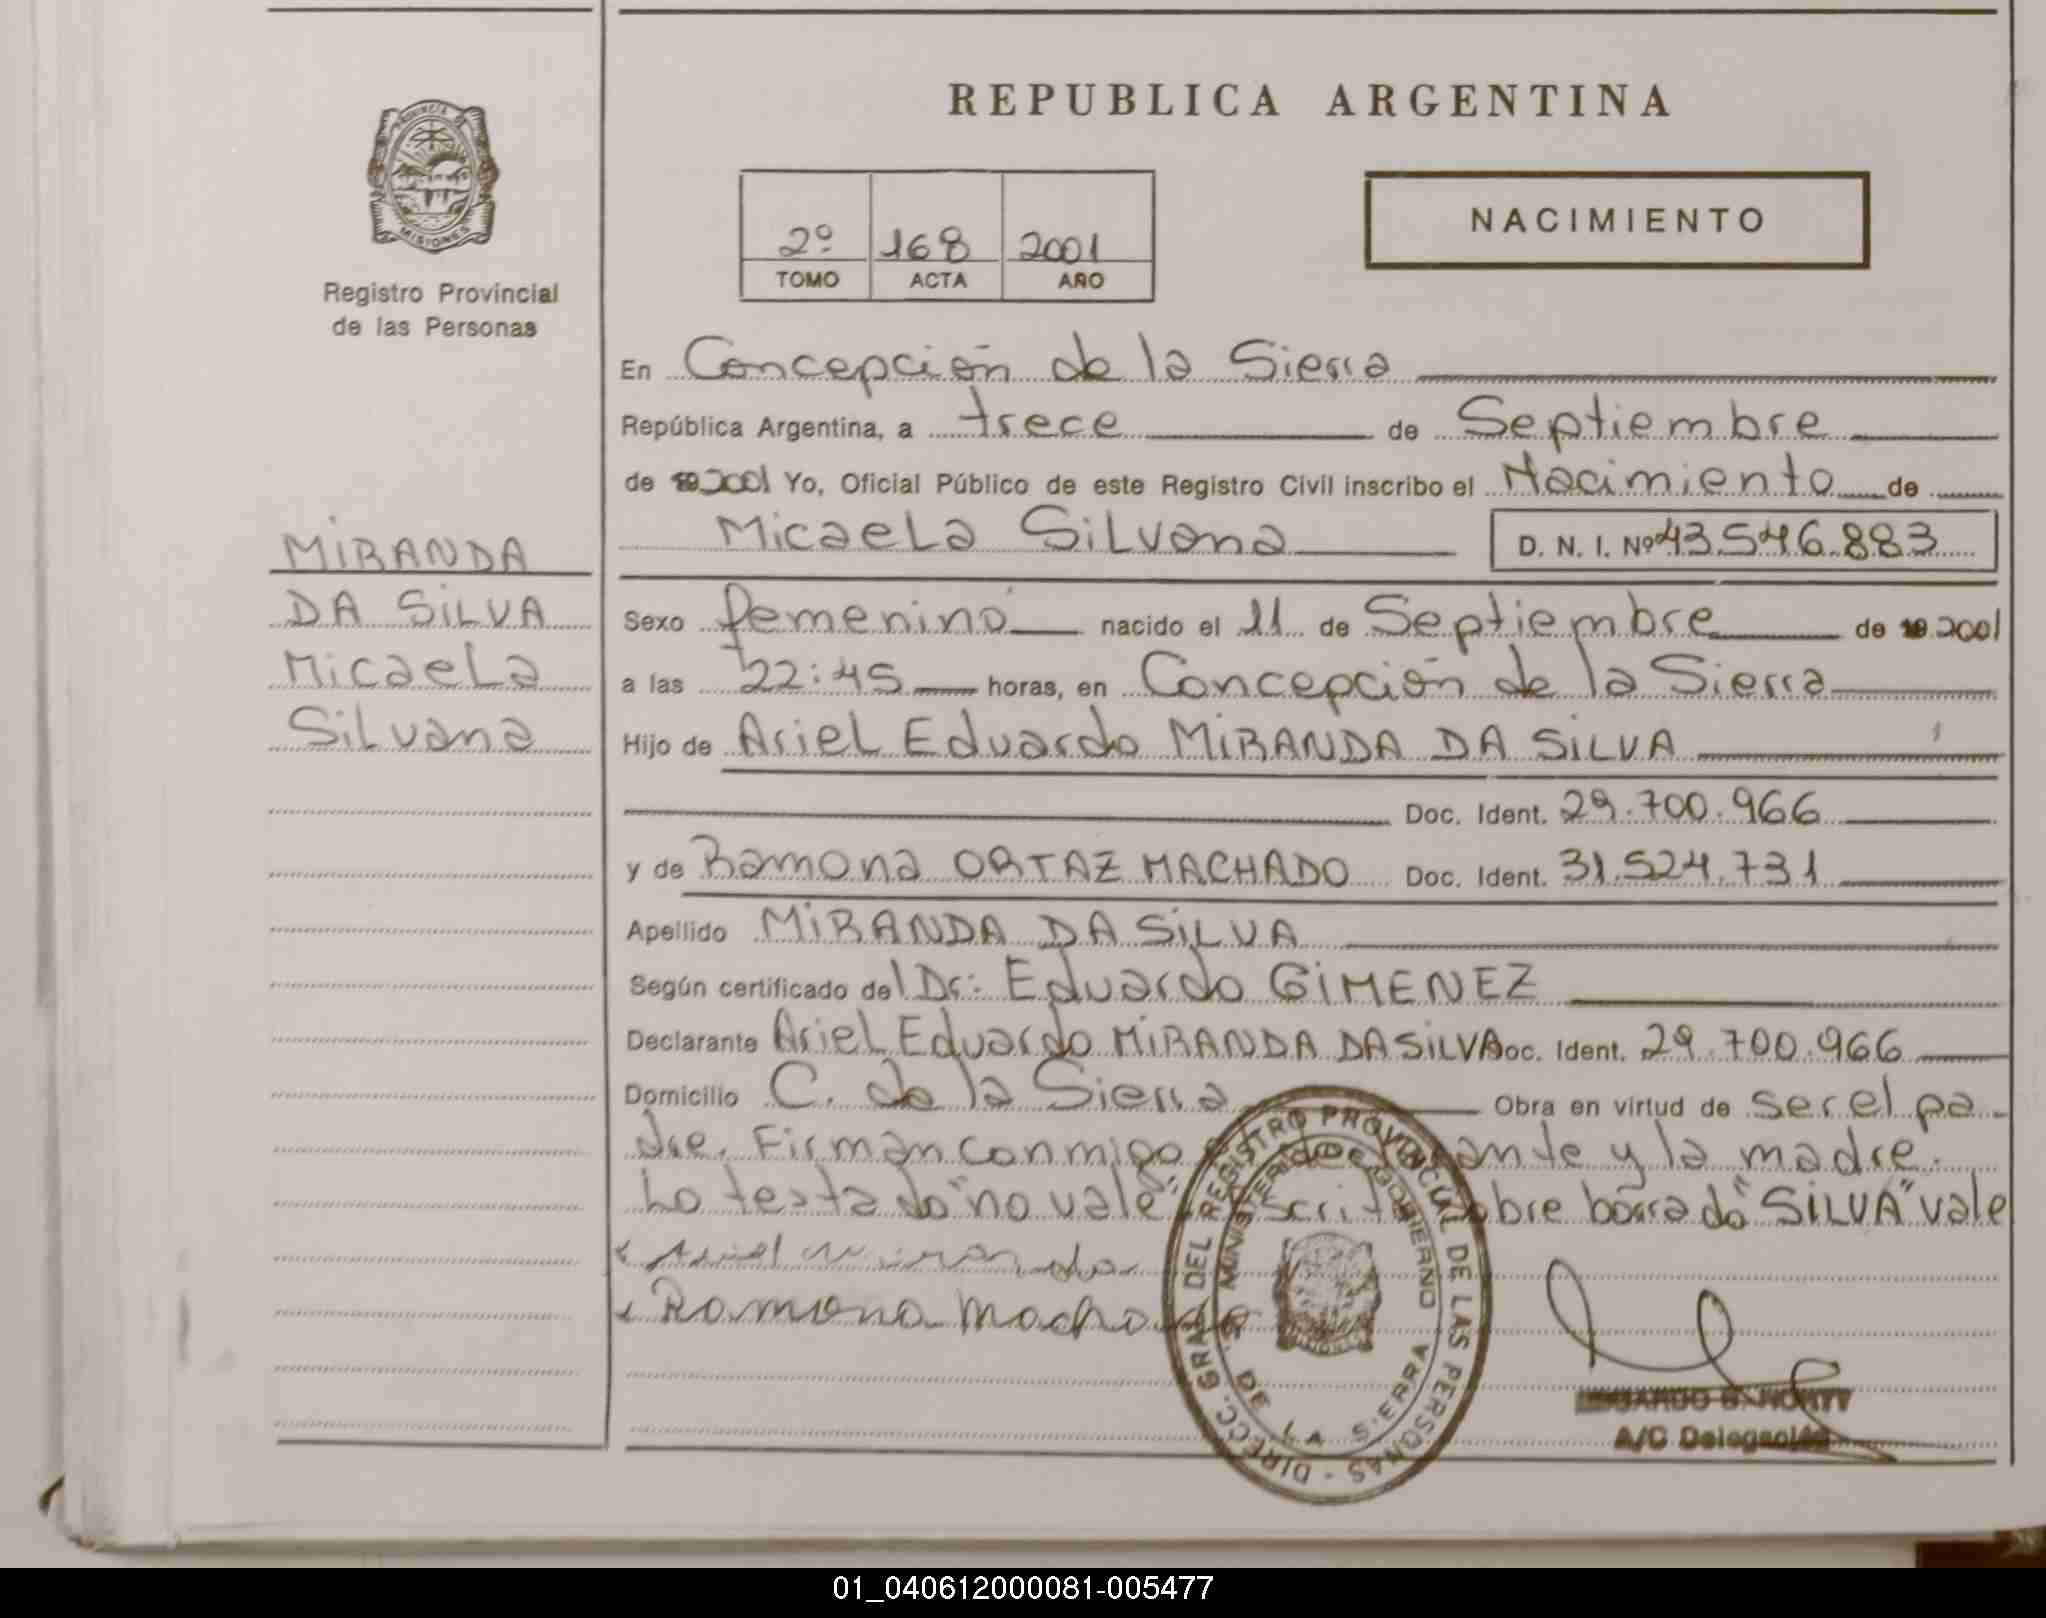 REPUBLICA ARGENTINA
PROVINCIA DE
MISIONES
Registro Provincial
de las Personas
2º 168 2001
TOMO ACTA AÑO
NACIMIENTO
En Concepción de la Sierra
República Argentina, a trece de Septiembre
de 2001 Yo, Oficial Público de este Registro Civil inscribo el Nacimiento de
Micaela Silvana D. N. I. Nº 43.546.883
MIRANDA
DA SILVA
Micaela
Silvana
Sexo femenino nacido el 11 de Septiembre de 2001
a las 22:45 horas, en Concepción de la Sierra
Hijo de Ariel Eduardo MIRANDA DA SILVA
Doc. Ident. 29.700.966
y de Ramona ORTAZ MACHADO Doc. Ident. 31.524.731
Apellido MIRANDA DA SILVA
Según certificado del Dr: Eduardo GIMENEZ
Declarante Ariel Eduardo MIRANDA DA SILVA Doc. Ident. 29.700.966
Domicilio C. de la Sierra Obra en virtud de ser el pa
dre. Firman conmigo y la madre.
Lo testado "no vale" sobre borrado "SILVA" vale
Ariel Miranda
Ramona Machado
DIRECC. GRAL DEL REGISTRO PROVINCIAL DE LAS PERSONAS
MINISTERIO DE GOBIERNO
DE LA SIERRA
A/C Delegación
01_040612000081-005477